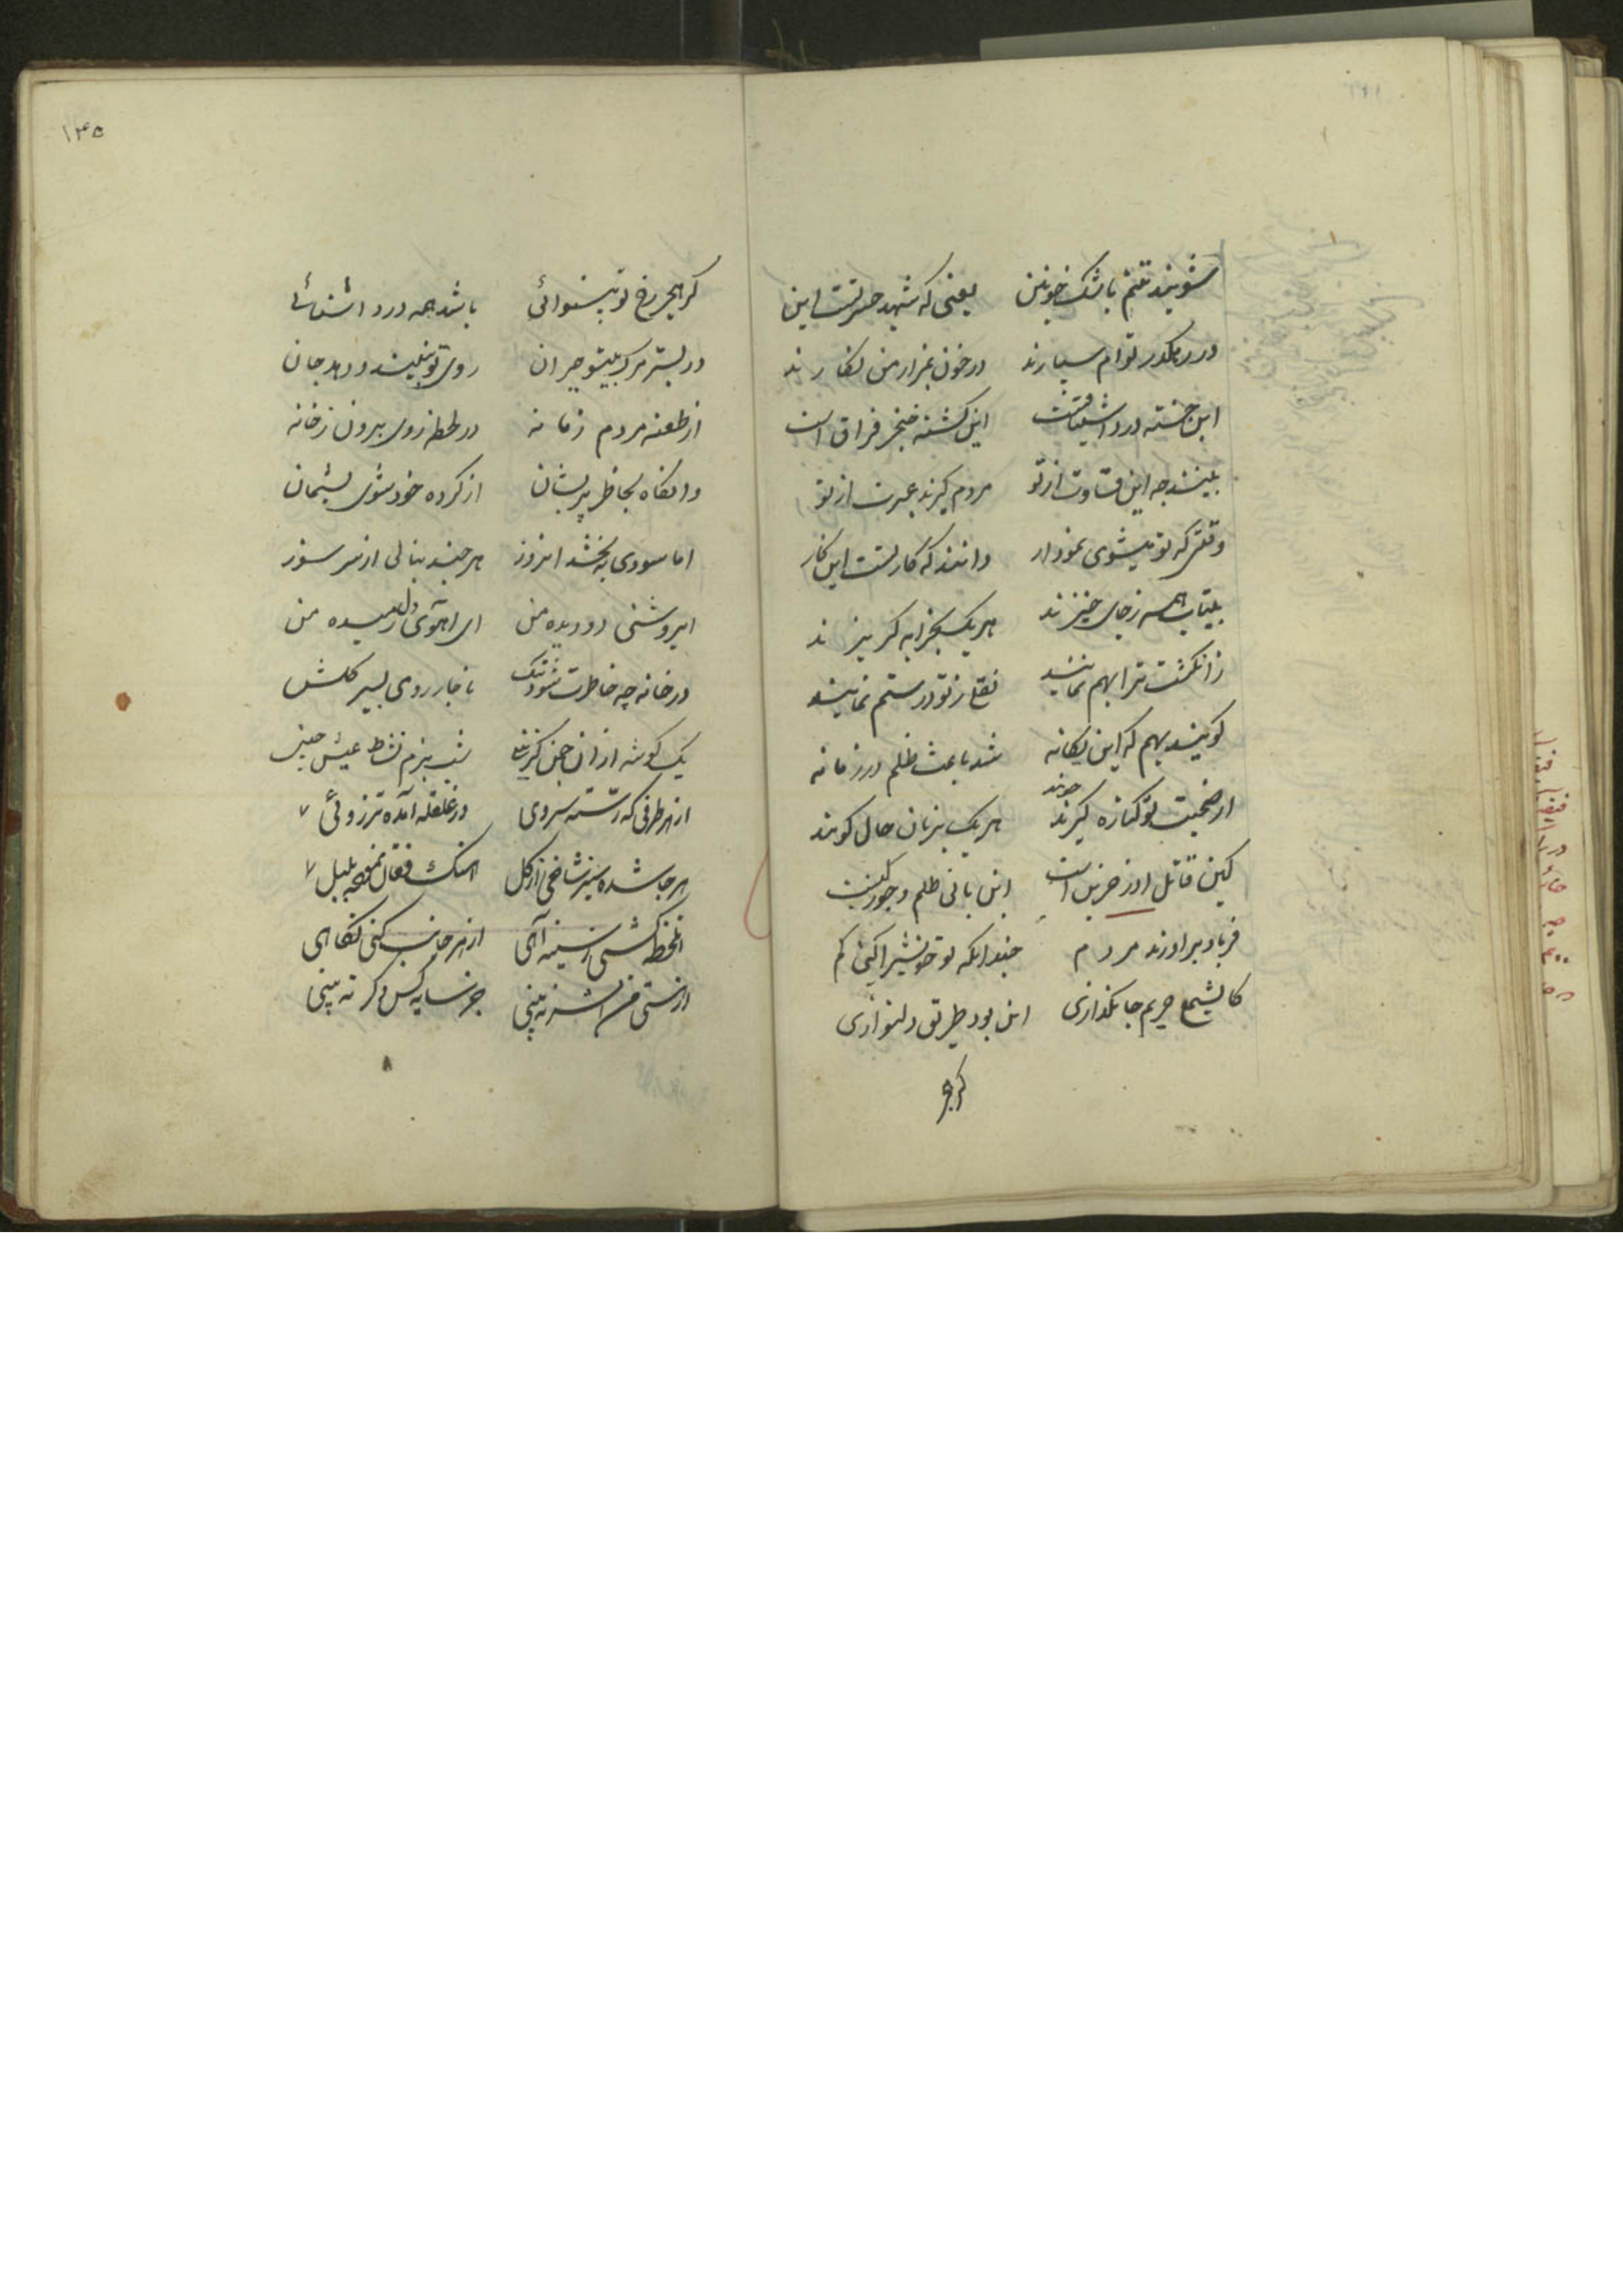 شویند تنم باشک خونین یعنی که شهید حسرتست این
در رهگذر توام سپارند در خون بمزار من نگارند
این خسته درد اشتیاقست این کشته خنجر فراق است
بینند چه این قساوت از تو مردم گیرند عبرت از تو
وقتی که تو میشوی نمودار دانند که کار تست این کار
بیتاب همه ز جای خیزند هر یک بخرابه گریزند
ز انگشت ترا بهم نمایند نقل ز تو در ستم نمایند
گویند بهم که این یگانه شد باعث ظلم در زمانه
از صحبت تو کناره گیرند جویند هر یک بزبان حال گویند
کین قاتل اوز حزین است این بانی ظلم و جور کین است
فریاد براورند مردم چندانکه تو خویش را کنی گم
کایشمع حریم جانگدازی این بود طریق دلنوازی
گر هجر
۱۴۵
گر هجر رخ تو بینوائی باشد همه درد اشنائی
در بستر مرگ بیتو حیران روی تو نبیند و دهد جان
از طعنه مردم زمانه در لحظه روی برون ز خانه
وانگاه بخاطر پریشان از کرده خود شوی پشیمان
اما سودی نبخشد انروز هر چند بنالی از سر سوز
ای روشنی دو دیده من ای اهوی دل رمیده من
در خانه چه خاطرت شود تنگ ناچار روی بسیر گلشن
یک گوشه از ان چمن گزینی شب بزم نشاط عیش چینی
از هر طرفی که رسته سروی در غلغله آمده تذروی ۷
هر جا شده سبز شاخی از گل اهنگ فغان نموده بلبل ۷
انلحظه کشی ز سینه آهی از هر جانب کنی نگاهی
از هستی من اثر نه بینی جز سایه کس دگر نه بینی
۸